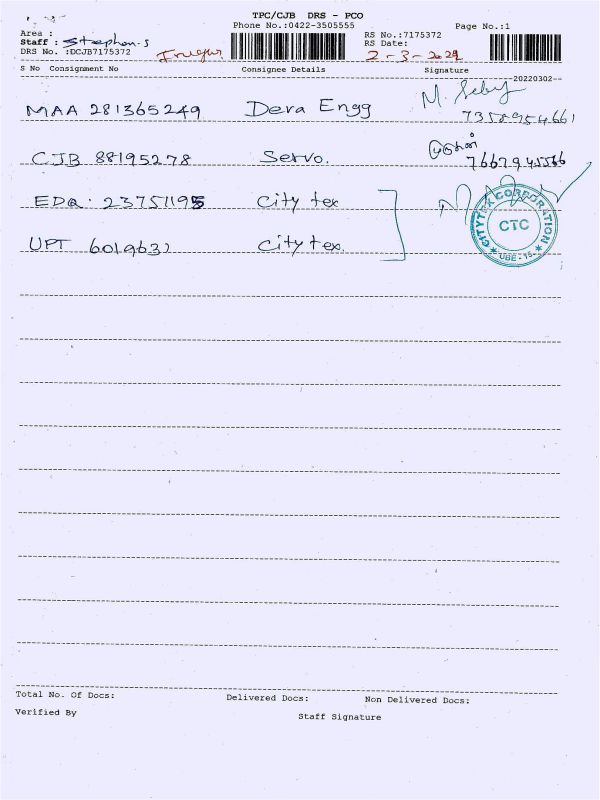 TPC/CJB DRS - PCO
Phone No.:0422-3505555 Page No.:1
Area :
Staff : Stephen.s
RS No.:7175372
RS Date:
DRS No. :DCJB7175372
2-3-2022
S No Consignment No Consignee Details Signature
20220302
MAA 281365249 Deva Engg
7358954661
CJB 88195278 Servo.
EDQ. 237511985 City tex
UPT 6019632 City tex.
CITYTEX CORPORATION
CTC
Total No. Of Docs: Delivered Docs: Non Delivered Docs:
Verified By Staff Signature